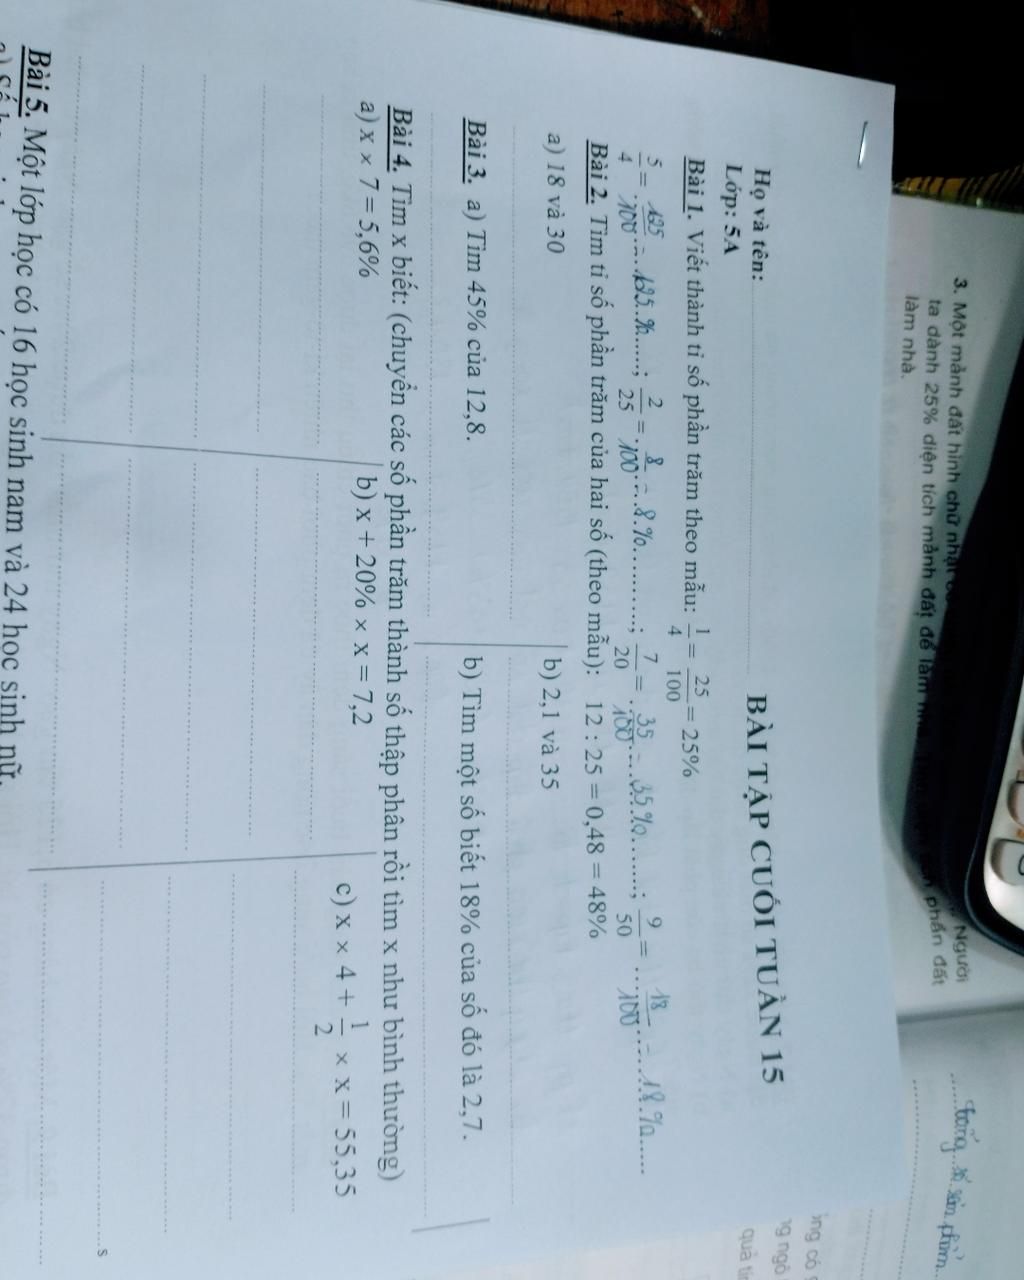 3. Một mảnh đất hình chữ nhật Người
ta dành 25% diện tích mảnh đất để làm phần đất
làm nhà.
Họ và tên:
BÀI TẬP CUỐI TUẦN 15
Lớp: 5A
Bài 1. Viết thành tỉ số phần trăm theo mẫu: 1/4 = 25/100 = 25%
5/4 = 125/100 = 125%; 2/25 = 8/100 = 8%; 7/20 = 35/100 = 35%; 9/50 = 18/100 = 18%
Bài 2. Tìm tỉ số phần trăm của hai số (theo mẫu): 12 : 25 = 0,48 = 48%
a) 18 và 30
b) 2,1 và 35
Bài 3. a) Tìm 45% của 12,8.
b) Tìm một số biết 18% của số đó là 2,7.
Bài 4. Tìm x biết: (chuyển các số phần trăm thành số thập phân rồi tìm x như bình thường)
a) x × 7 = 5,6%
b) x + 20% × x = 7,2
c) x × 4 + 1/2 × x = 55,35
Bài 5. Một lớp học có 16 học sinh nam và 24 học sinh nữ.
sản phẩm